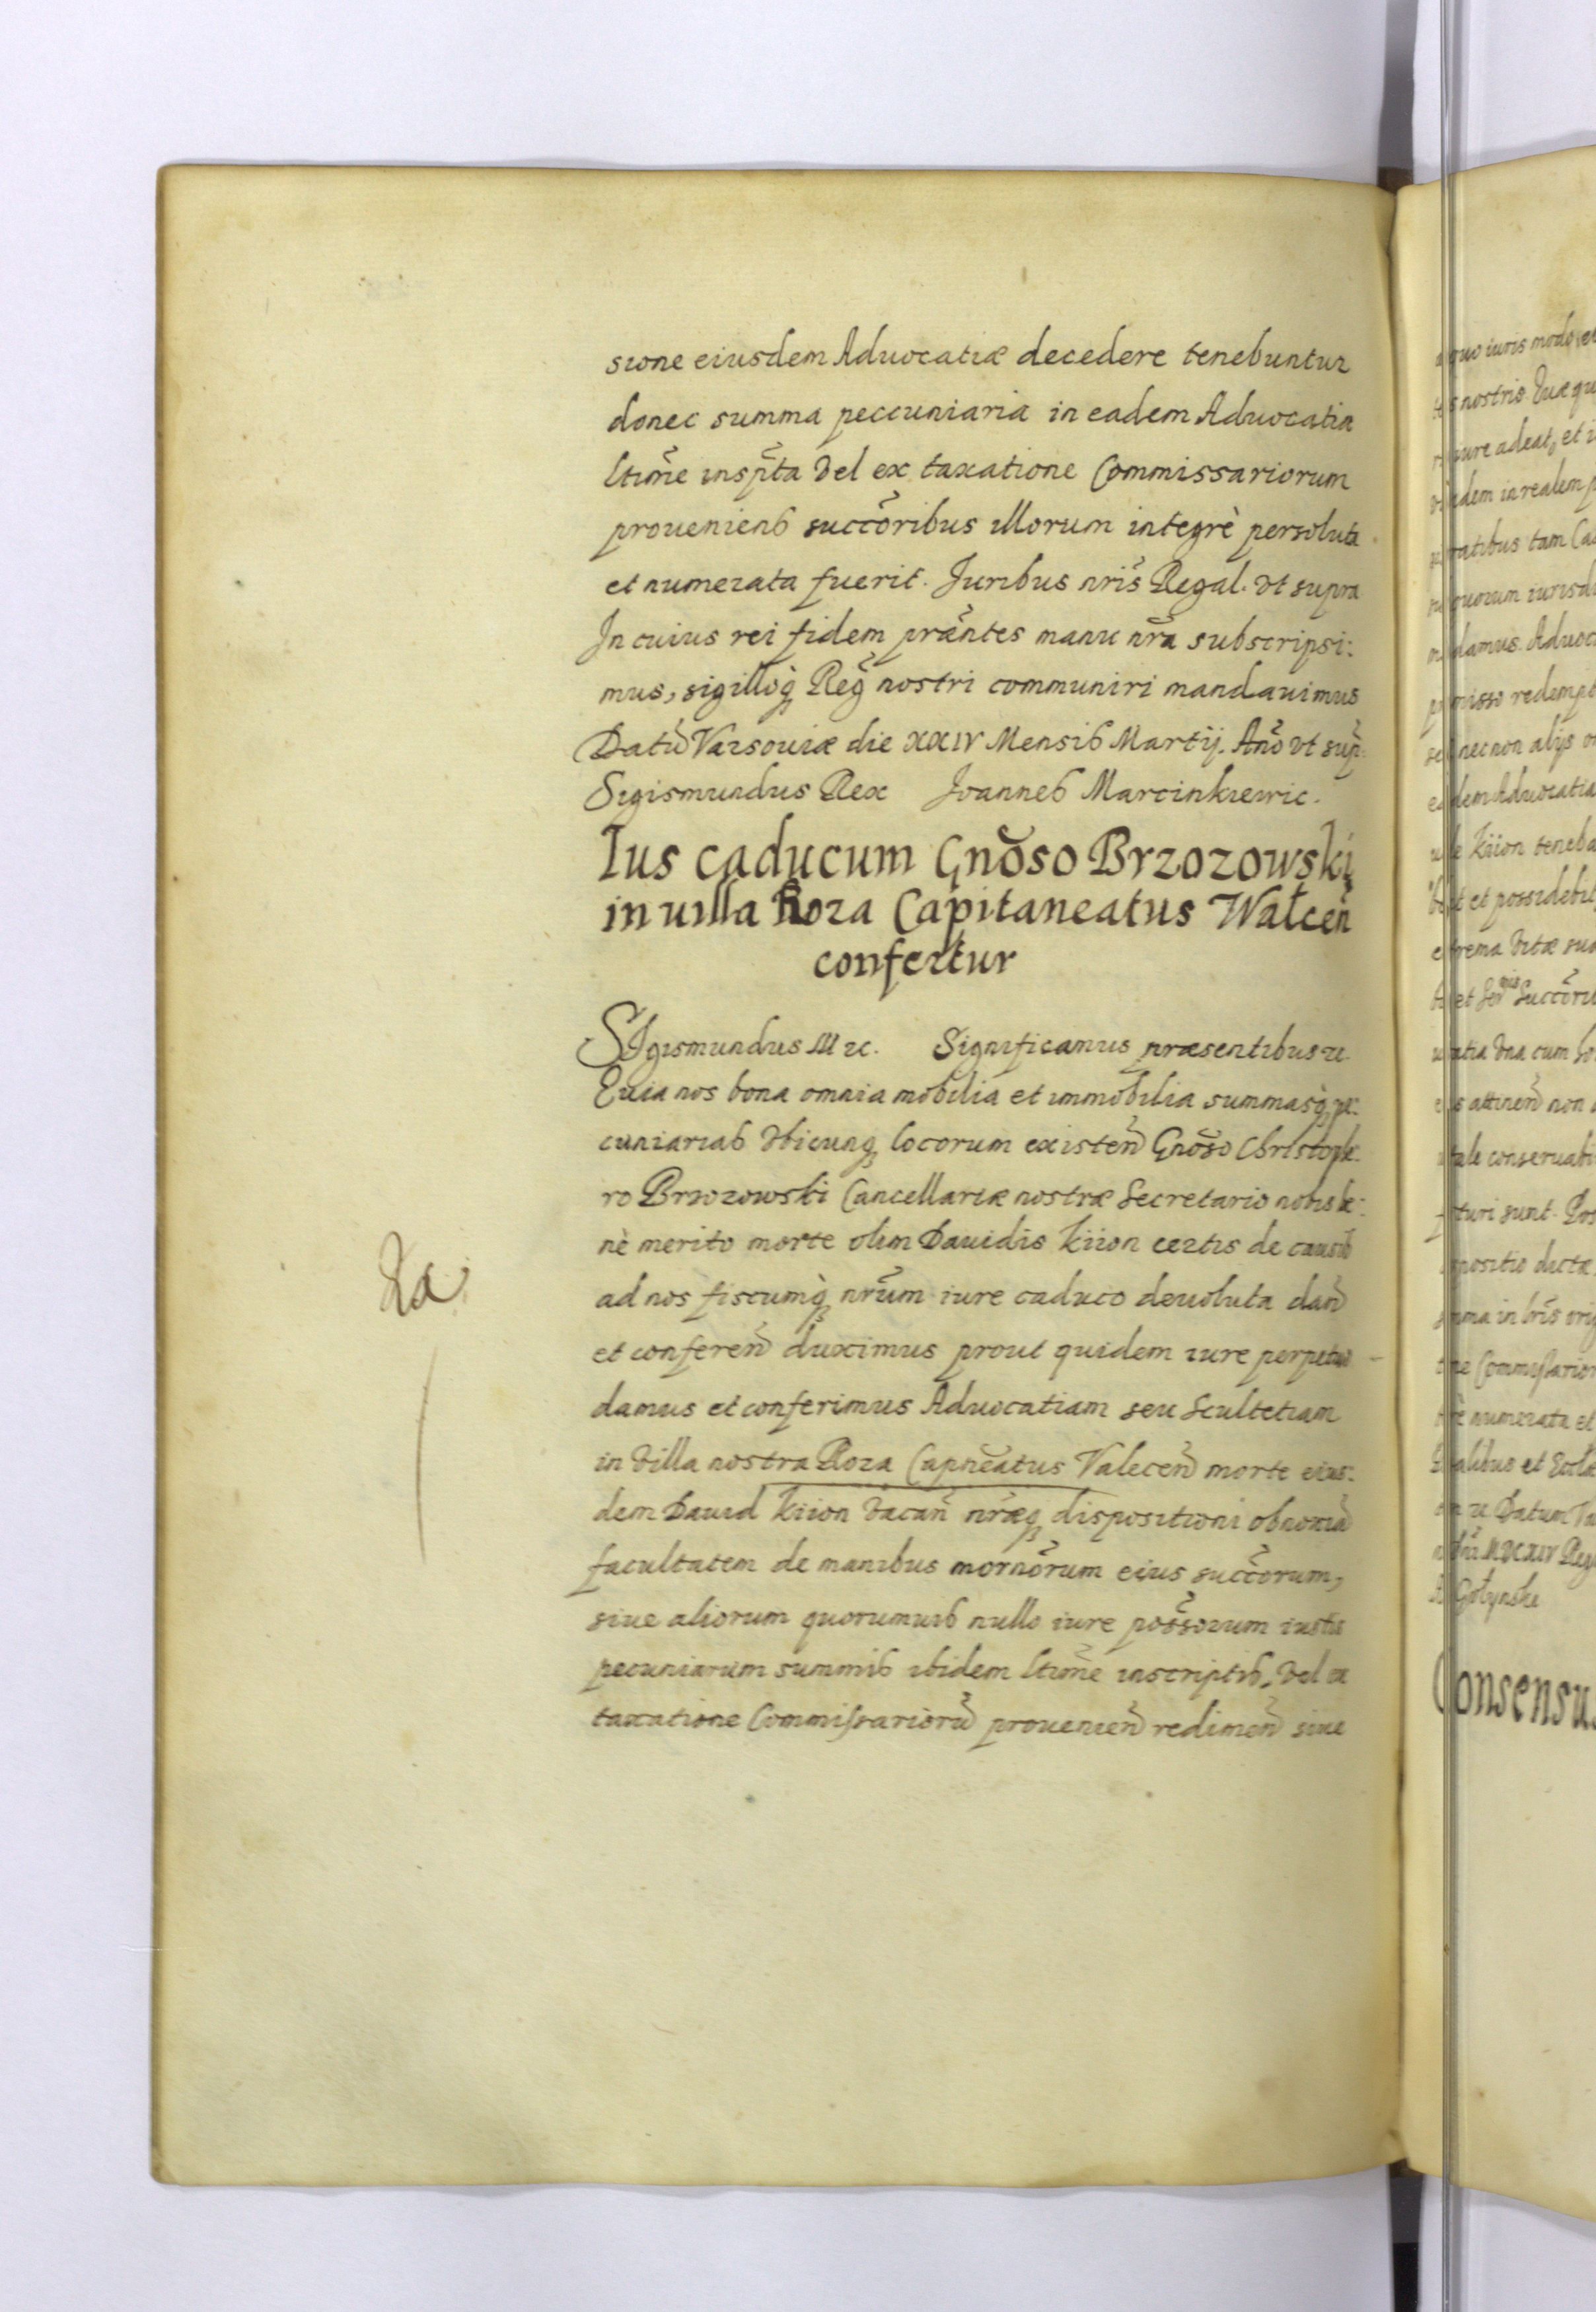 sione eiusdem Advocatiæ decedere tenebuntur
donec summa peccuniaria in eadem Advocatia
ltim̃e insp̃ta vel ex taxatione Commissariorum
proueniens succ̃oribus illorum integrè persoluta
et numerata fuerit. Juribus nr̃is Regal. vt supra
In cuius rei fidem præñtes manu nr̃a subscripsi:
mus, sigilloq̃ Reg̃ nostri communiri mandauimus
Datũ Varsouiæ die XXIV Mensis Martij. Anõ vt sup̃:
Sigismundus Rex Joannes Marcinkiewic.
Ius caducum Gnõso Brzozowski
in uilla Roza Capitaneatus Wałceñ
confertur
SIgismundus III ꝛc. Significamus præsentibus ꝛc.
Quia nos bona omnia mobilia et immobilia summasq̃ pe:
cuniarias vbicunq̃ locorum existeñ Gnõso Christoph:
ro Brzozowski Cancellariæ nostræ Secretario nobis be:
nè merito morte olim Dauidis Kiion certis de causis
ad nos fiscumq̃ nr̃um iure caduco deuoluta dañ
et confereñ duximus prout quidem iure perpetuo
damus et conferimus Aduocatiam seu Scultetiam
in villa nostra Roza Capñeatus Valeceñ morte eius:
dem Dauid Kiion vacañ nr̃æq̃ dispositioni obnoxiã
facultatem de manibus mornõrum eius succ̃orum,
siue aliorum quorumuis nullo iure poss̃orum iustis
pecuniarum summis ibidem ltim̃e inscriptis, vel ex
taxatione Commissariorũ prouenieñ redimeñ siue
iuris modo
nostris
iure adeat, et
in realem
tam
damus.
redimpt
nec non alijs
Kiion
et possidebit
vitæ
et
vna cum
attineñ non
conseruabi
sunt.
dictæ
in
numerata et
et
ꝛc Datum
Consensu